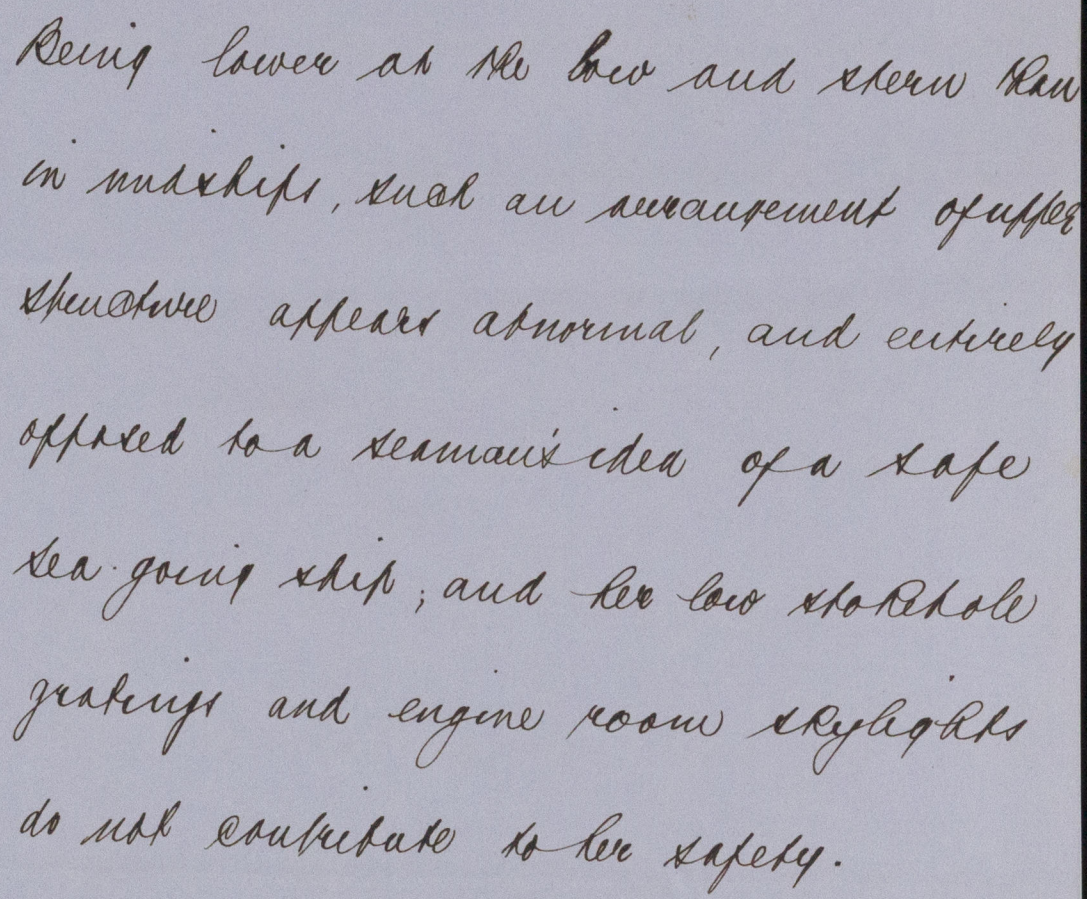 Being lower at the bow and stern than
in midships, such an arrangement of upper
structure appears abnormal, and entirely
opposed to a seaman's idea of a safe
sea-going ship; and her low stokehole
gratings and engine room skylights
do not contribute to her safety.